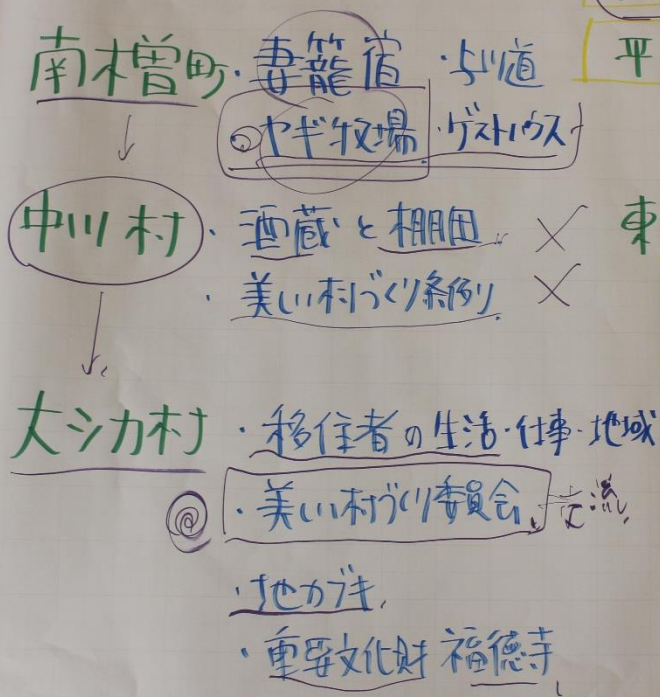 南木曽町・妻籠宿・与川道
平
ヤギ牧場・ゲストハウス
中川村・酒蔵と棚田 ×
東
・美しい村づくり条例り ×
大シカ村・移住者の生活・仕事・地域
・美しい村づくり委員会 交流
・地カブキ
・重要文化財 福徳寺